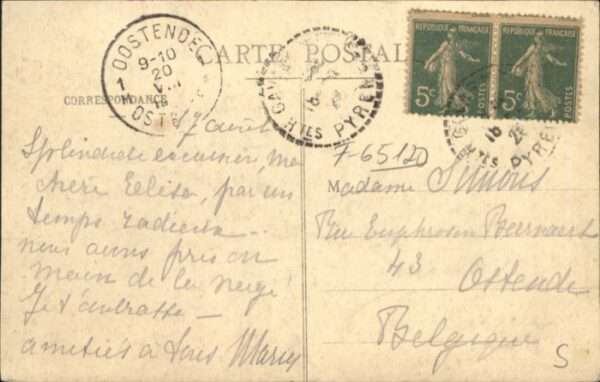 CARTE POSTALE
CORRESPONDANCE
OOSTENDE
9-10
20
VIII
OSTENDE
GAV
16
HTES PYREN
REPUBLIQUE FRANÇAISE
5c
POSTES
REPUBLIQUE FRANÇAISE
5c
POSTES
16
HTES PYREN
17 août
Splendide excursion, ma
chère Elisa, par un
temps radieux
nous avons pris en
main de la neige
Je t'embrasse —
amitiés à tous Marie
7-65120
Madame Simons
Rue Euphrosin Beernaert
43
Ostende
Belgique
S